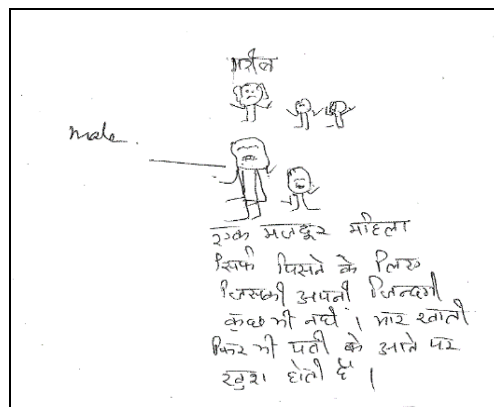 गरीब
male.
एक मजदूर महिला
सिर्फ पिसने के लिए
जिसकी अपनी जिन्दगी
कुछ भी नहीं । मार खाती
फिर भी पती के आने पर
खुश होती है ।